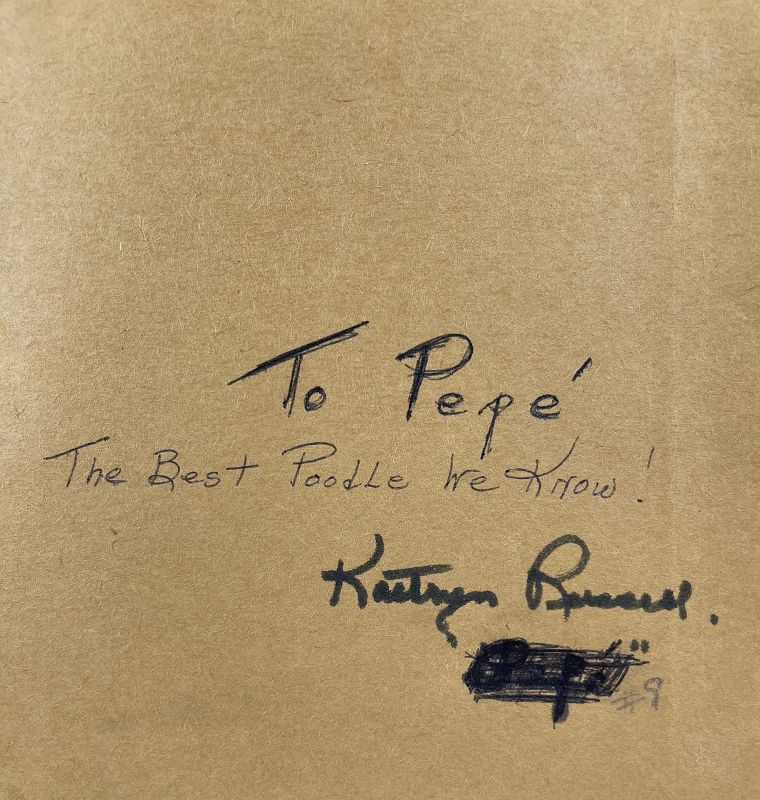 To Pepé
The Best Poodle We Know!
Kathryn Russell.
#9